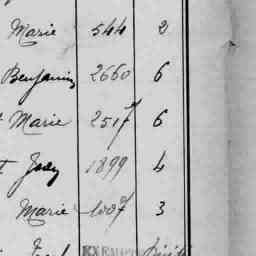 Marie 544 2
Benjamin 2660 6
Marie 2517 6
1899 4
Marie 1007 3
EXEMPT